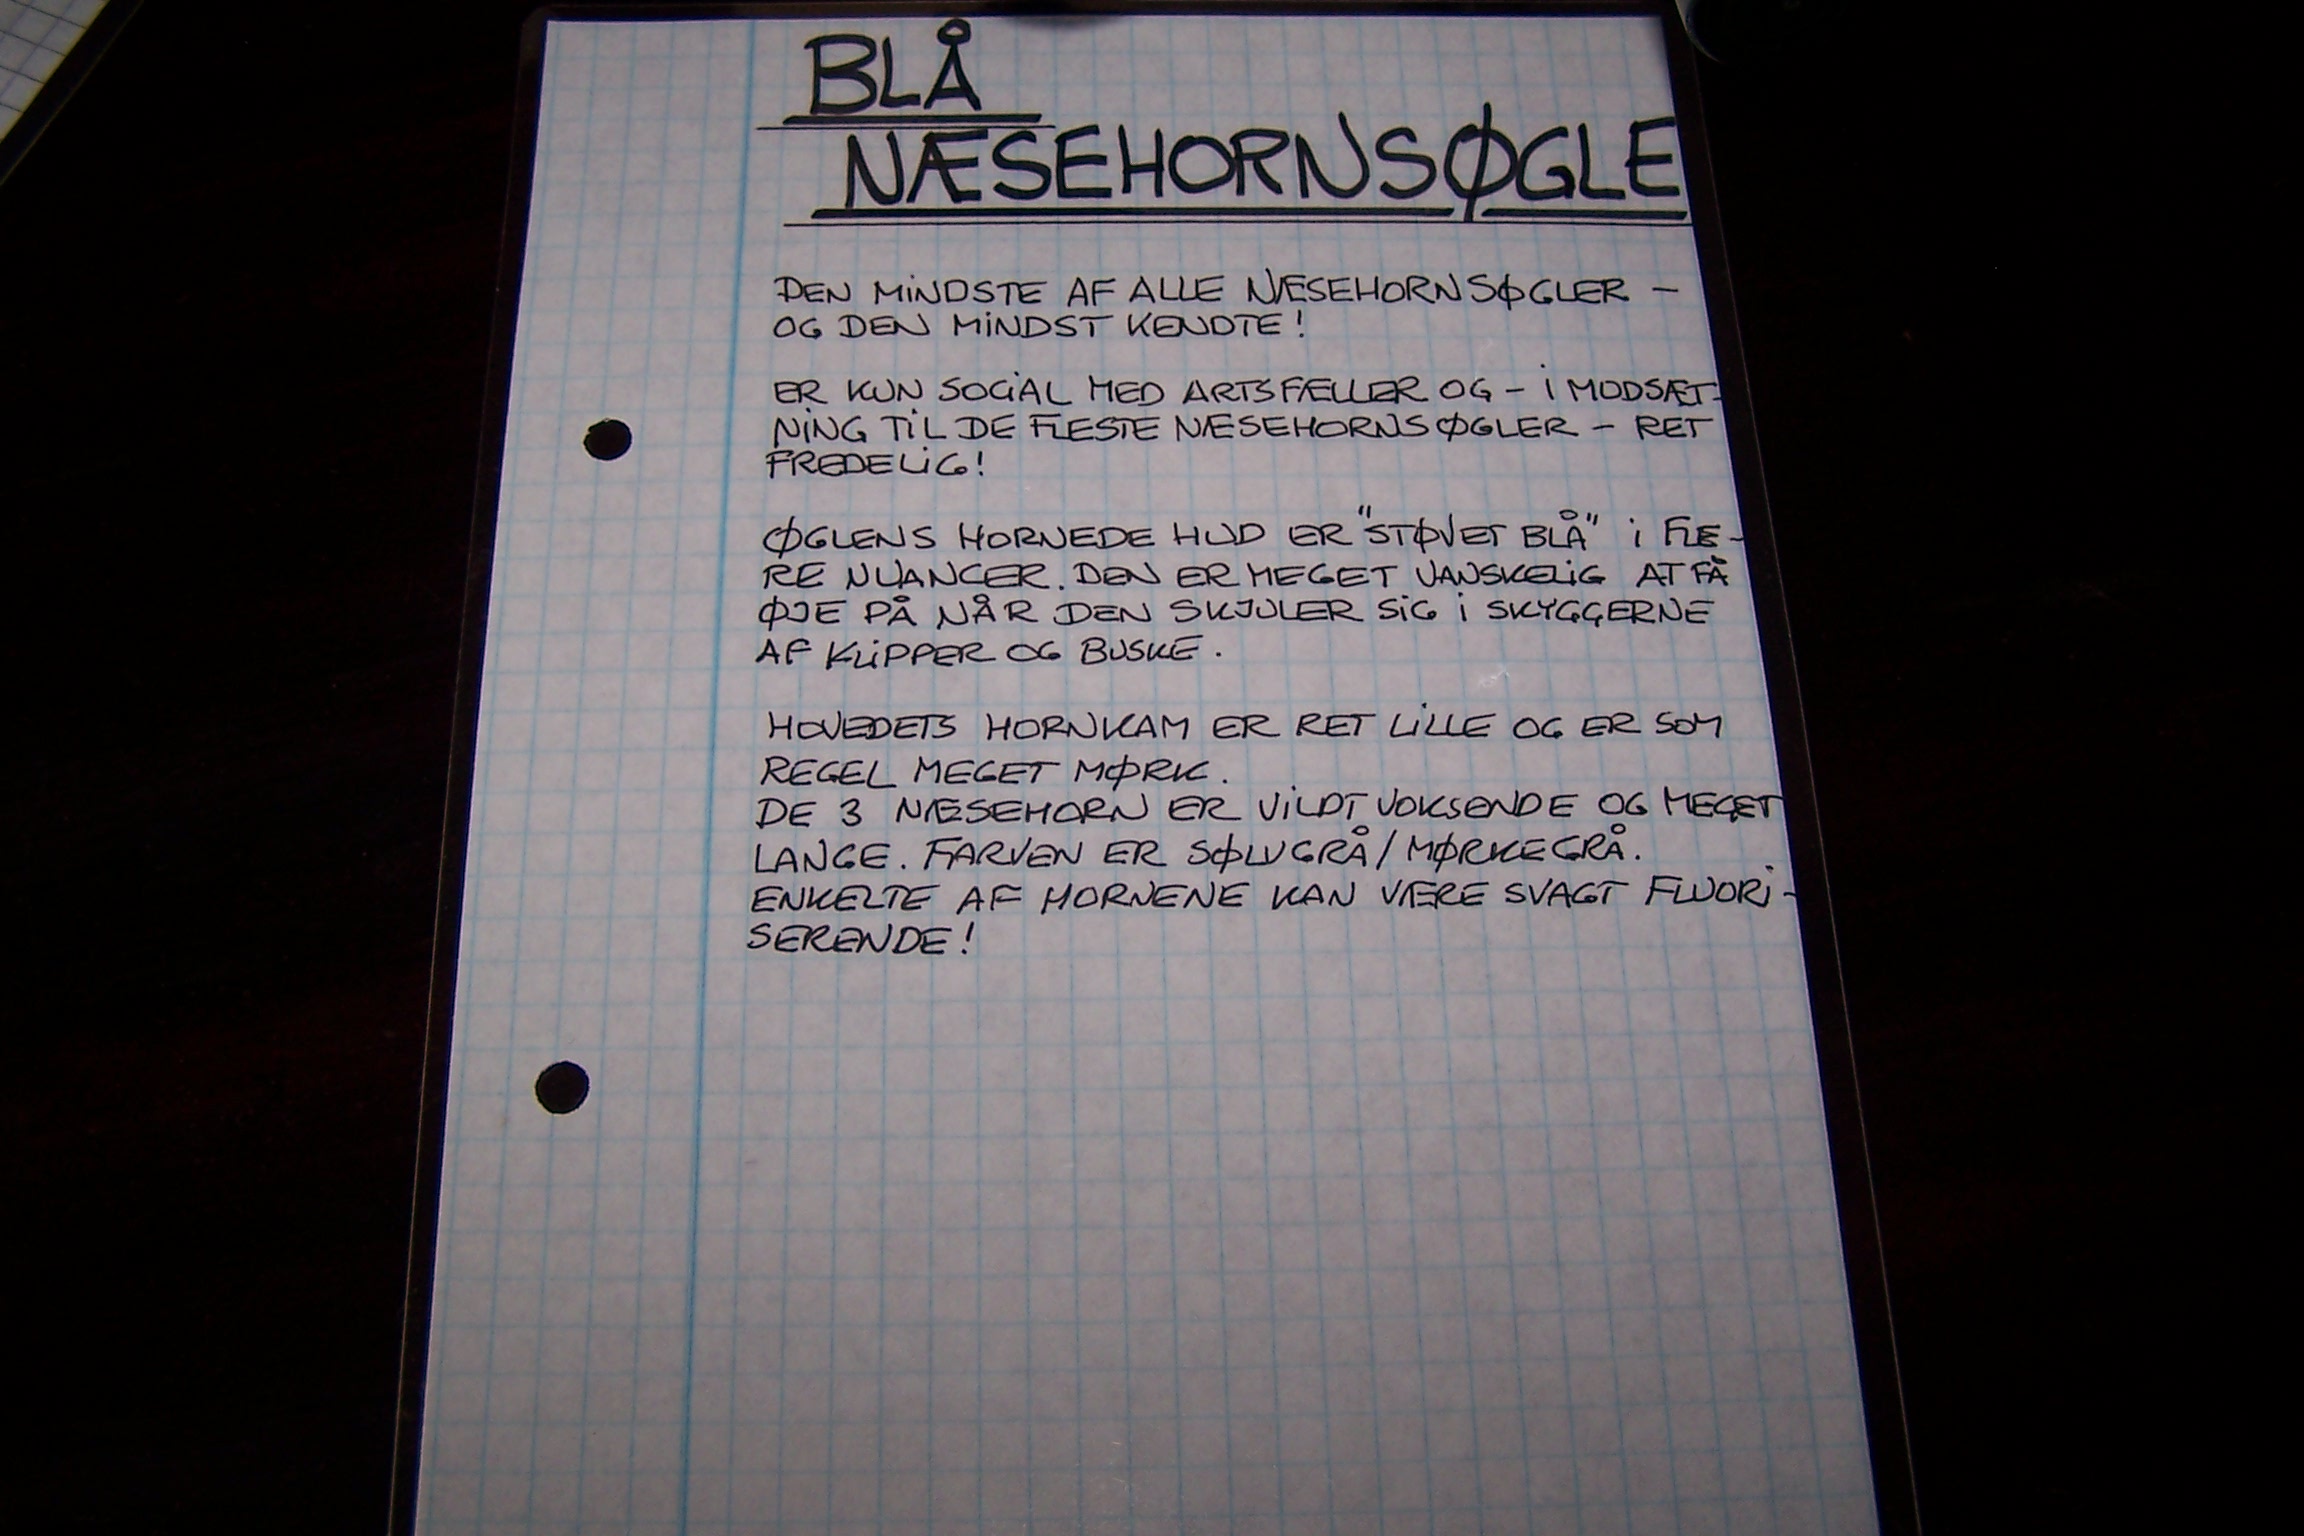 BLÅ
NÆSEHORNSØGLE
DEN MINDSTE AF ALLE NÆSEHORNSØGLER –
OG DEN MINDST KENDTE!
ER KUN SOCIAL MED ARTSFÆLLER OG – I MODSÆT-
NING TIL DE FLESTE NÆSEHORNSØGLER – RET
FREDELIG!
ØGLENS HORNEDE HUD ER "STØVET BLÅ" I FLE-
RE NUANCER. DEN ER MEGET VANSKELIG AT FÅ
ØJE PÅ NÅR DEN SKJULER SIG I SKYGGERNE
AF KLIPPER OG BUSKE.
HOVEDETS HORNKAM ER RET LILLE OG ER SOM
REGEL MEGET MØRK.
DE 3 NÆSEHORN ER VILDTVOKSENDE OG MEGET
LANGE. FARVEN ER SØLVGRÅ/MØRKEGRÅ.
ENKELTE AF HORNENE KAN VÆRE SVAGT FLUORI-
SERENDE!